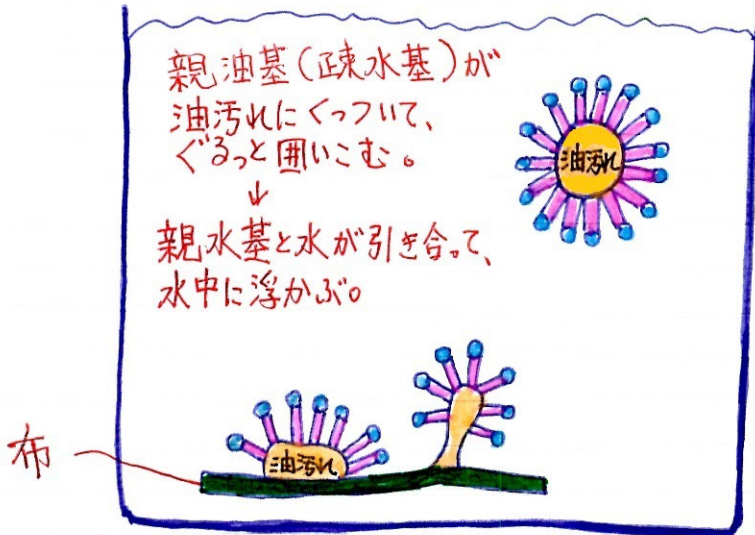 親油基(疎水基)が
油汚れにくっついて、
ぐるっと囲いこむ。
↓
親水基と水が引き合って、
水中に浮かぶ。
油汚れ
油汚れ
布